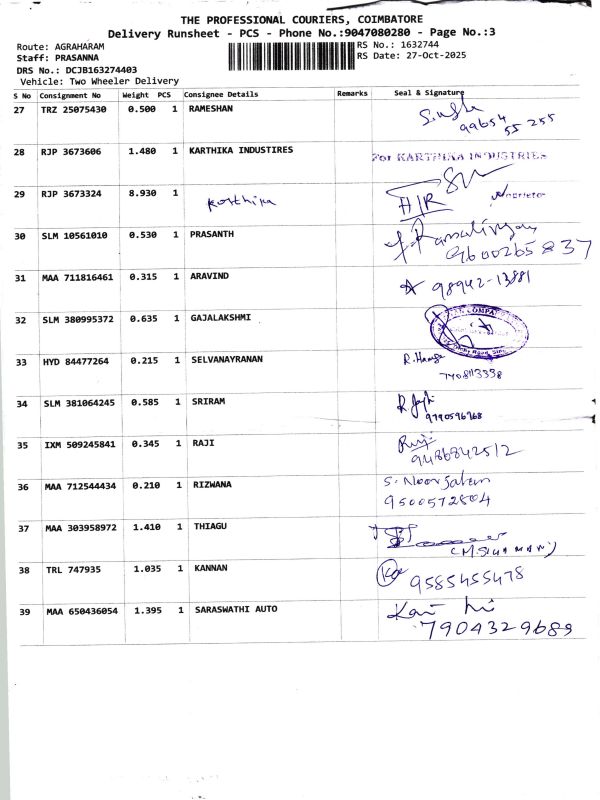 THE PROFESSIONAL COURIERS, COIMBATORE
Delivery Runsheet - PCS - Phone No.:9047080280 - Page No.:3
Route: AGRAHARAM RS No.: 1632744
Staff: PRASANNA RS Date: 27-Oct-2025
DRS No.: DCJB163274403
Vehicle: Two Wheeler Delivery
S No Consignment No Weight PCS Consignee Details Remarks Seal & Signature
27 TRZ 25075430 0.500 1 RAMESHAN
99654
55 255
28 RJP 3673606 1.480 1 KARTHIKA INDUSTIRES
For KARTHIKA INDUSTRIES
29 RJP 3673324 8.930 1 Karthika
Proprietor
30 SLM 10561010 0.530 1 PRASANTH
9600265837
31 MAA 711816461 0.315 1 ARAVIND 98942-13881
32 SLM 380995372 0.635 1 GAJALAKSHMI
33 HYD 84477264 0.215 1 SELVANAYRANAN R. Hamsa
7708113338
34 SLM 381064245 0.585 1 SRIRAM
9790596968
35 IXM 509245841 0.345 1 RAJI
9486842512
36 MAA 712544434 0.210 1 RIZWANA
9500572804
37 MAA 303958972 1.410 1 THIAGU
38 TRL 747935 1.035 1 KANNAN
9585455478
39 MAA 650436054 1.395 1 SARASWATHI AUTO
7904329689